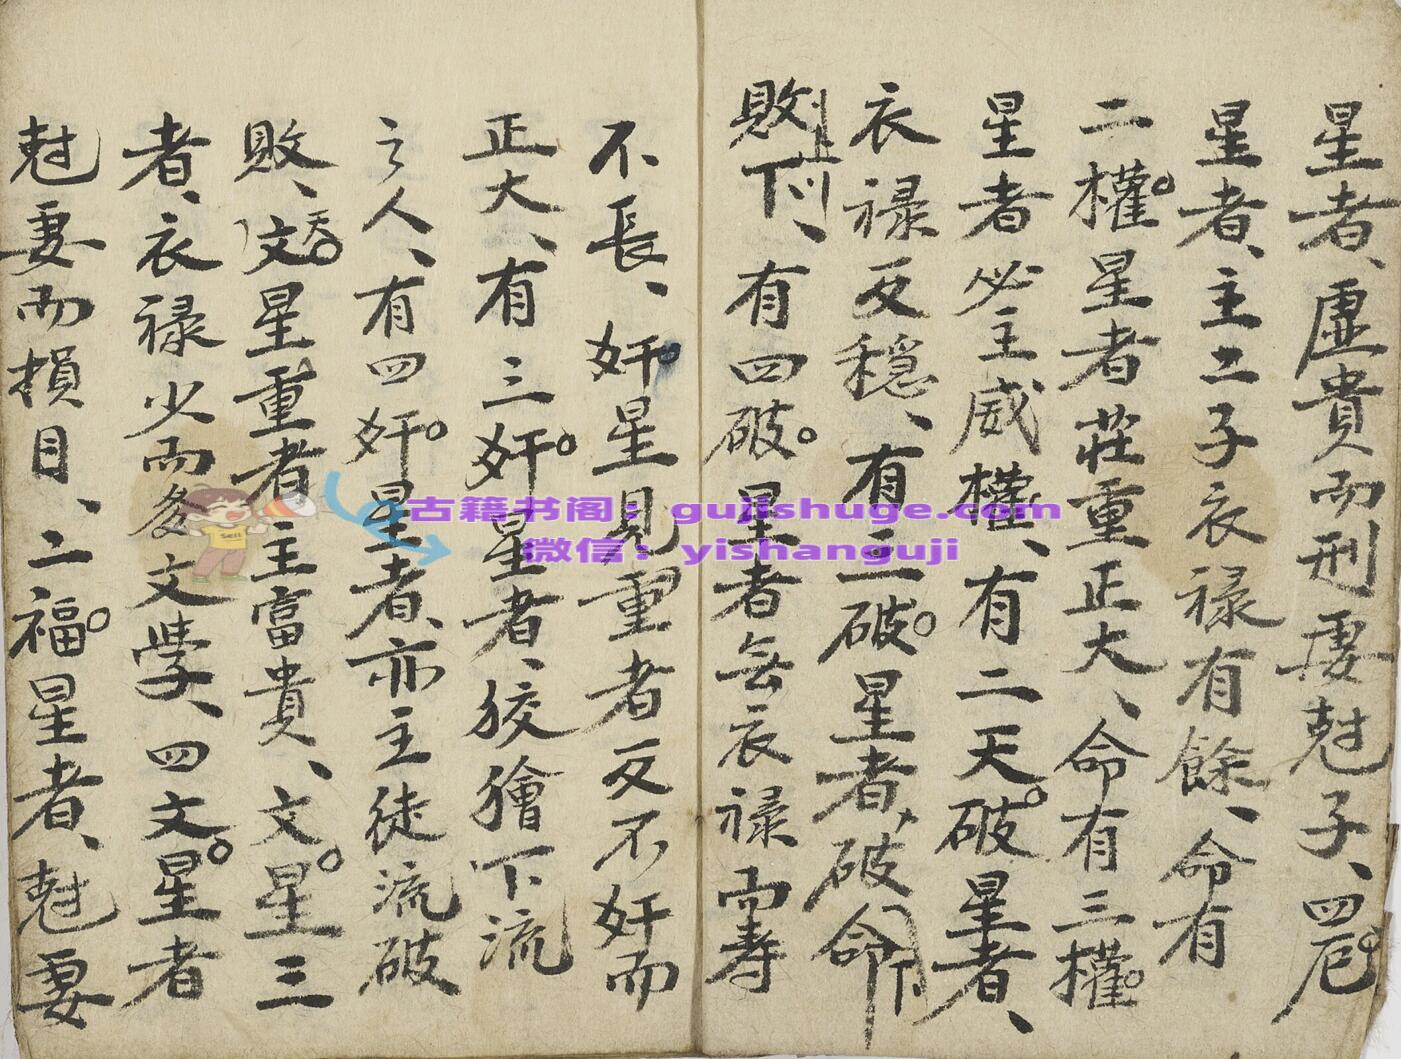 星者、虛貴而刑妻尅子、四厄
星者、主二子衣禄有餘、命有
二權星者莊重正大、命有三權
星者必主威權、有二天破星者、
衣禄反穩、有三破星者、破命
敗下、有四破星者無衣禄而壽
不長、奸星見重者反不奸而
正大、有三奸星者、狡獪下流
之人、有四奸星者、亦主徒流破
敗、文星重者主富貴、文星三
者、衣禄少而多文學、四文星者
尅妻而損目、二福星者、尅妻
古籍书阁：gujishuge.com
微信：yishanguji